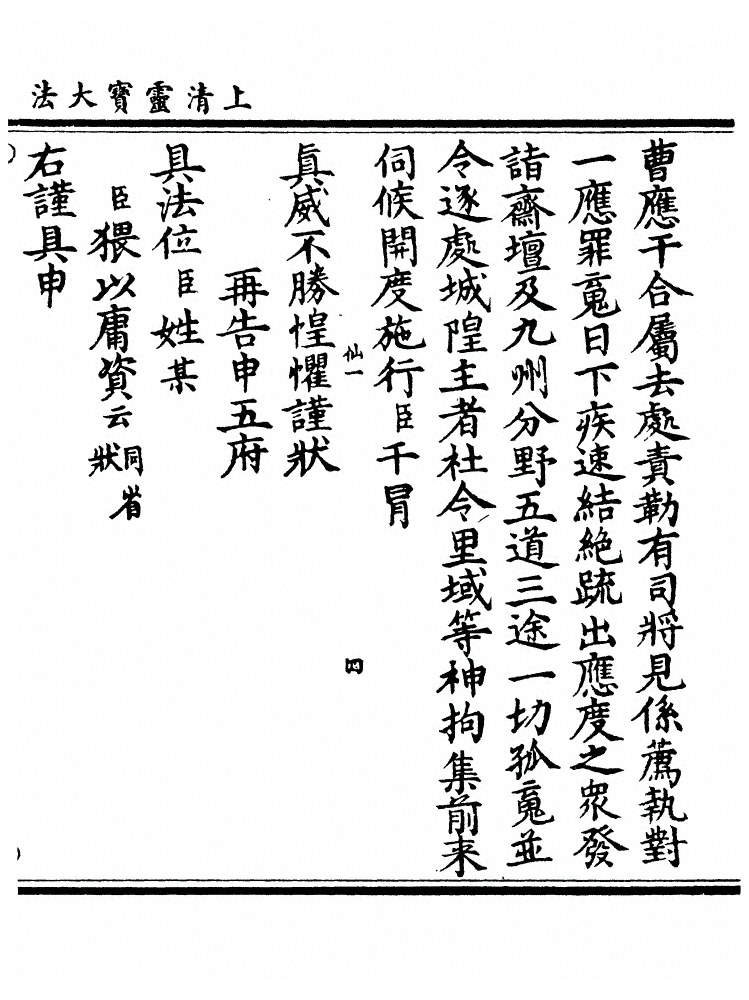 上清靈寶大法
曹應干合屬去處責勒有司將見係薦執對
一應罪䰟日下疾速結絕疏出應度之衆發
詣齋壇及九州分野五道三途一切孤䰟並
令逐處城隍主者社令里域等神拘集前来
伺候開度施行臣干冒
仙一 四
眞威不勝惶懼謹狀
再告申五府
具法位臣姓某
臣猥以庸資云同省狀
右謹具申